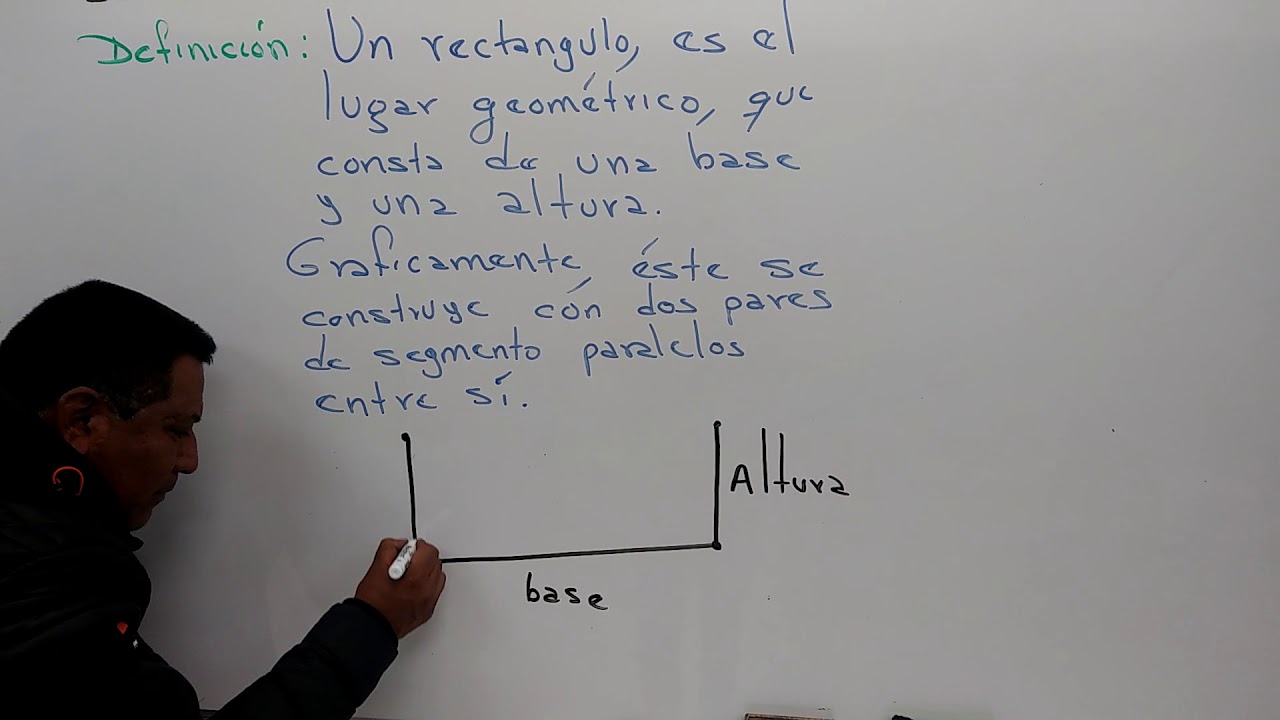 Definición: Un rectangulo, es el
lugar geométrico, que
consta de una base
y una altura.
Graficamente, éste se
construye cón dos pares
de segmento paralelos
entre sí.
Altura
base